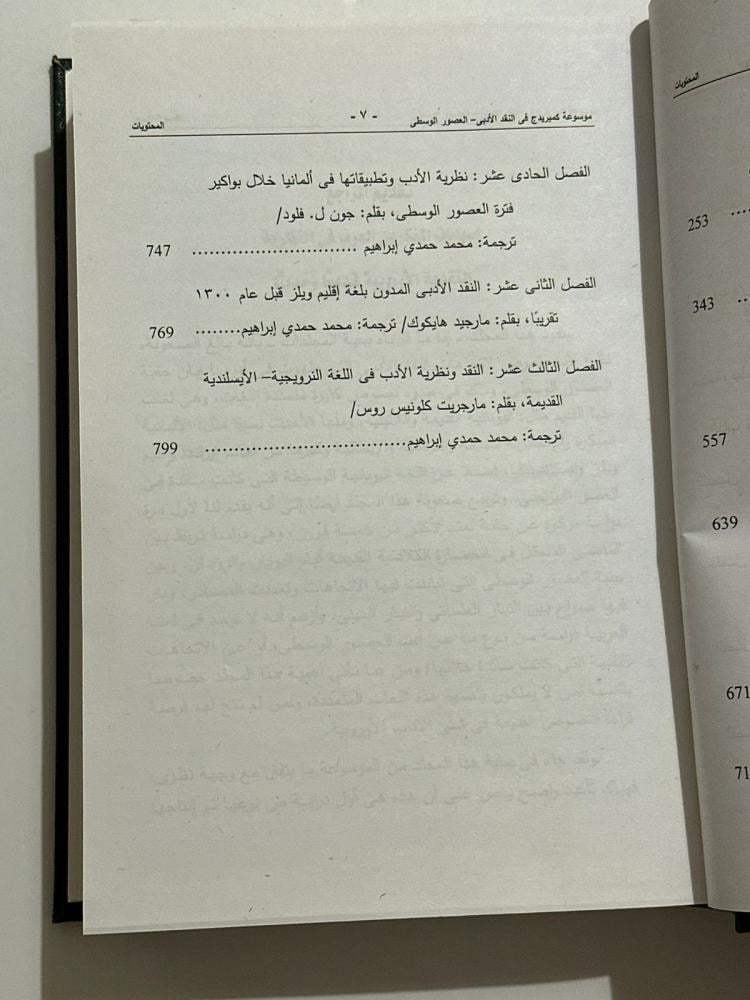 موسوعة كمبريدج فى النقد الأدبى- العصور الوسطى - ٧ - المحتويات
الفصل الحادى عشر: نظرية الأدب وتطبيقاتها فى ألمانيا خلال بواكير
فترة العصور الوسطى، بقلم: جون ل. فلود/
ترجمة: محمد حمدي إبراهيم ............................ 747
الفصل الثانى عشر: النقد الأدبى المدون بلغة إقليم ويلز قبل عام ١٣٠٠
تقريبًا، بقلم: مارجيد هايكوك/ ترجمة: محمد حمدي إبراهيم........ 769
الفصل الثالث عشر: النقد ونظرية الأدب فى اللغة النرويجية- الأيسلندية
القديمة، بقلم: مارجريت كلونيس روس/
ترجمة: محمد حمدي إبراهيم.................................. 799
المحتويات
253
343
557
639
671
71